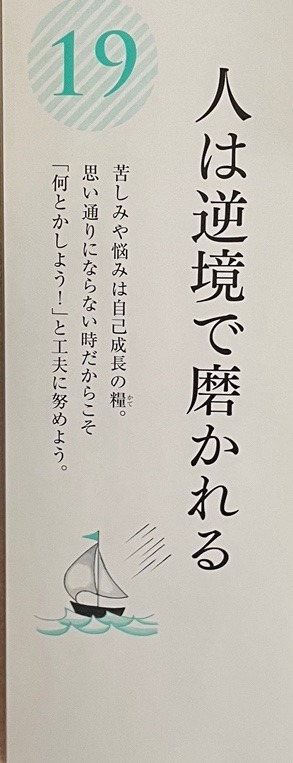 19
人は逆境で磨かれる
苦しみや悩みは自己成長の糧。
かて
思い通りにならない時だからこそ
「何とかしよう！」と工夫に努めよう。